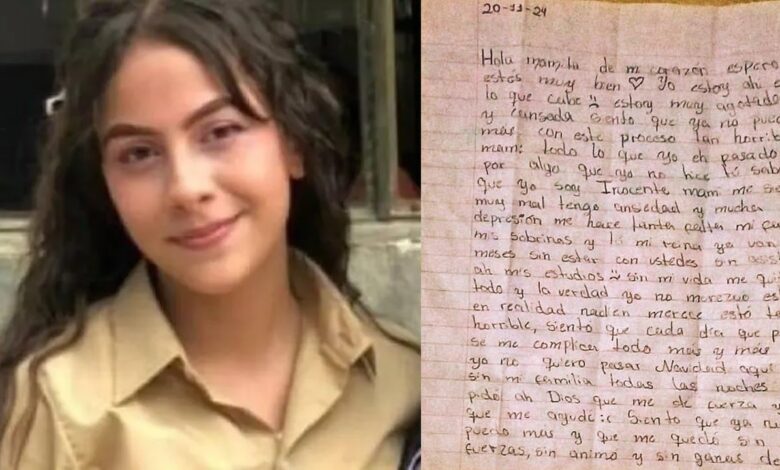 20-11-24
Hola mamita de mi corazón espero
estés muy bien ♡ Yo estoy ahí
lo que cabe estoy muy agotada
y cansada siento que ya no
más con este proceso tan horri
mami todo lo que yo eh pasado
por algo que yo no hice tú sab
que yo soy Inocente mami me si
muy mal tengo ansiedad y mucha
depresión me hace tanta falta mi
mis sobrinas y tú mi reina ya van
meses sin estar con ustedes sin
ah mis estudios sin mi vida me qu
todo y la verdad yo no merezco es
en realidad nadien merece esto
horrible, siento que cada día que p
se me complica todo más y más
yo no quiero pasar Navidad aquí
sin mi familia todas las noches
pido ah Dios que me de fuerza
que me ayude :c Siento que ya no
puedo mas y que me quedo sin
fuerzas, sin animo y sin ganas de